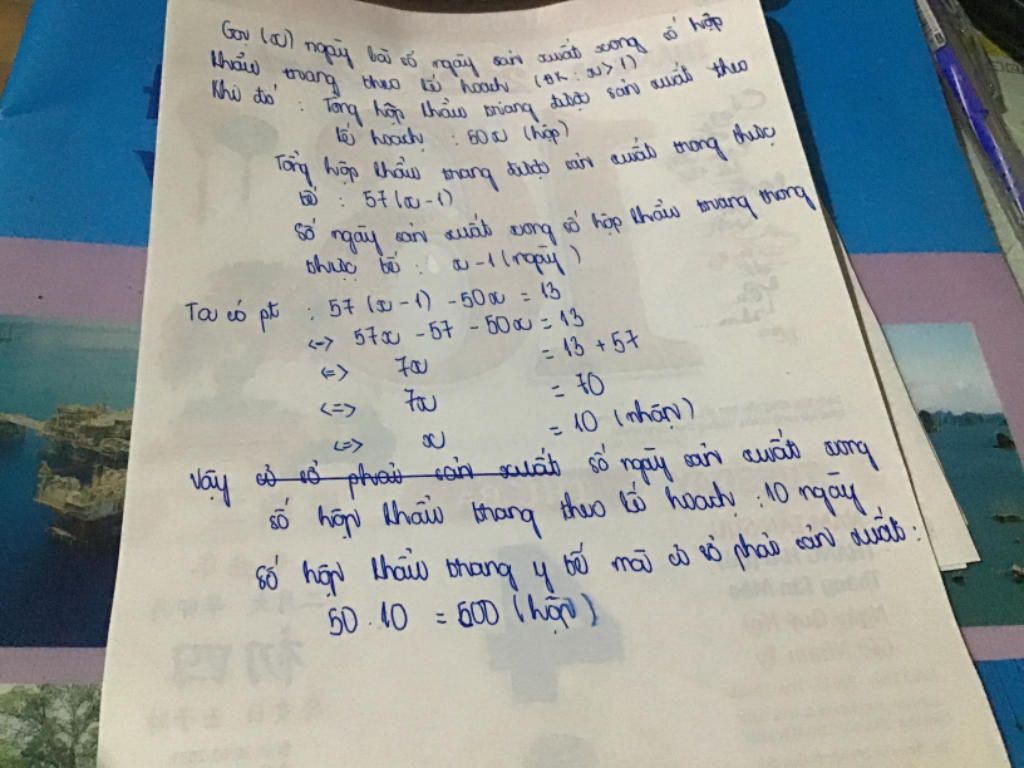 Gọi (x) ngày là số ngày sản xuất xong số hộp
khẩu trang theo kế hoạch (ĐK: x > 1)
Khi đó : Tổng hộp khẩu trang được sản xuất theo
kế hoạch : 50x (hộp)
Tổng hộp khẩu trang được sản xuất trong thực
tế : 57(x-1)
Số ngày sản xuất xong số hộp khẩu trang trong
thực tế : x-1 (ngày)
Ta có pt : 57 (x-1) - 50x = 13
<=> 57x - 57 - 50x = 13
<=> 7x = 13 + 57
<=> 7x = 70
<=> x = 10 (nhận)
Vậy cơ sở phải sản xuất số ngày sản xuất xong
số hộp khẩu trang theo kế hoạch : 10 ngày
số hộp khẩu trang y tế mà cơ sở phải sản xuất :
50 . 10 = 500 (hộp)